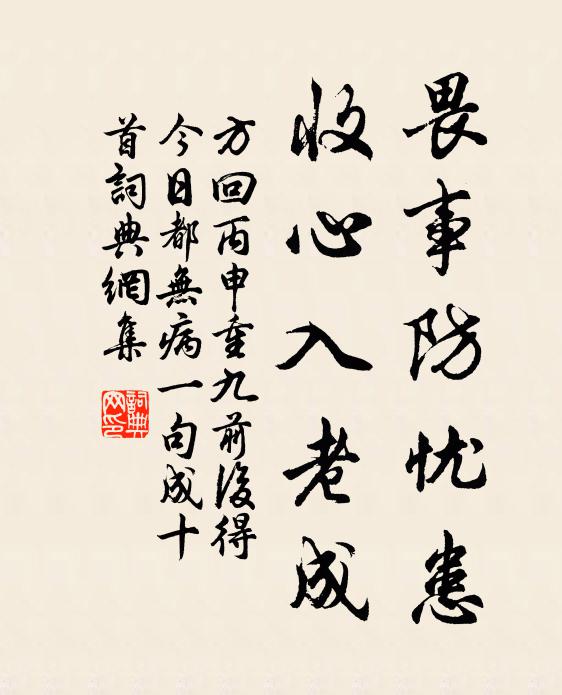 畏事防忧患
收心入老成
方回丙申重九前後得
今日都無病一句成十
首詞典網集
詞典网印